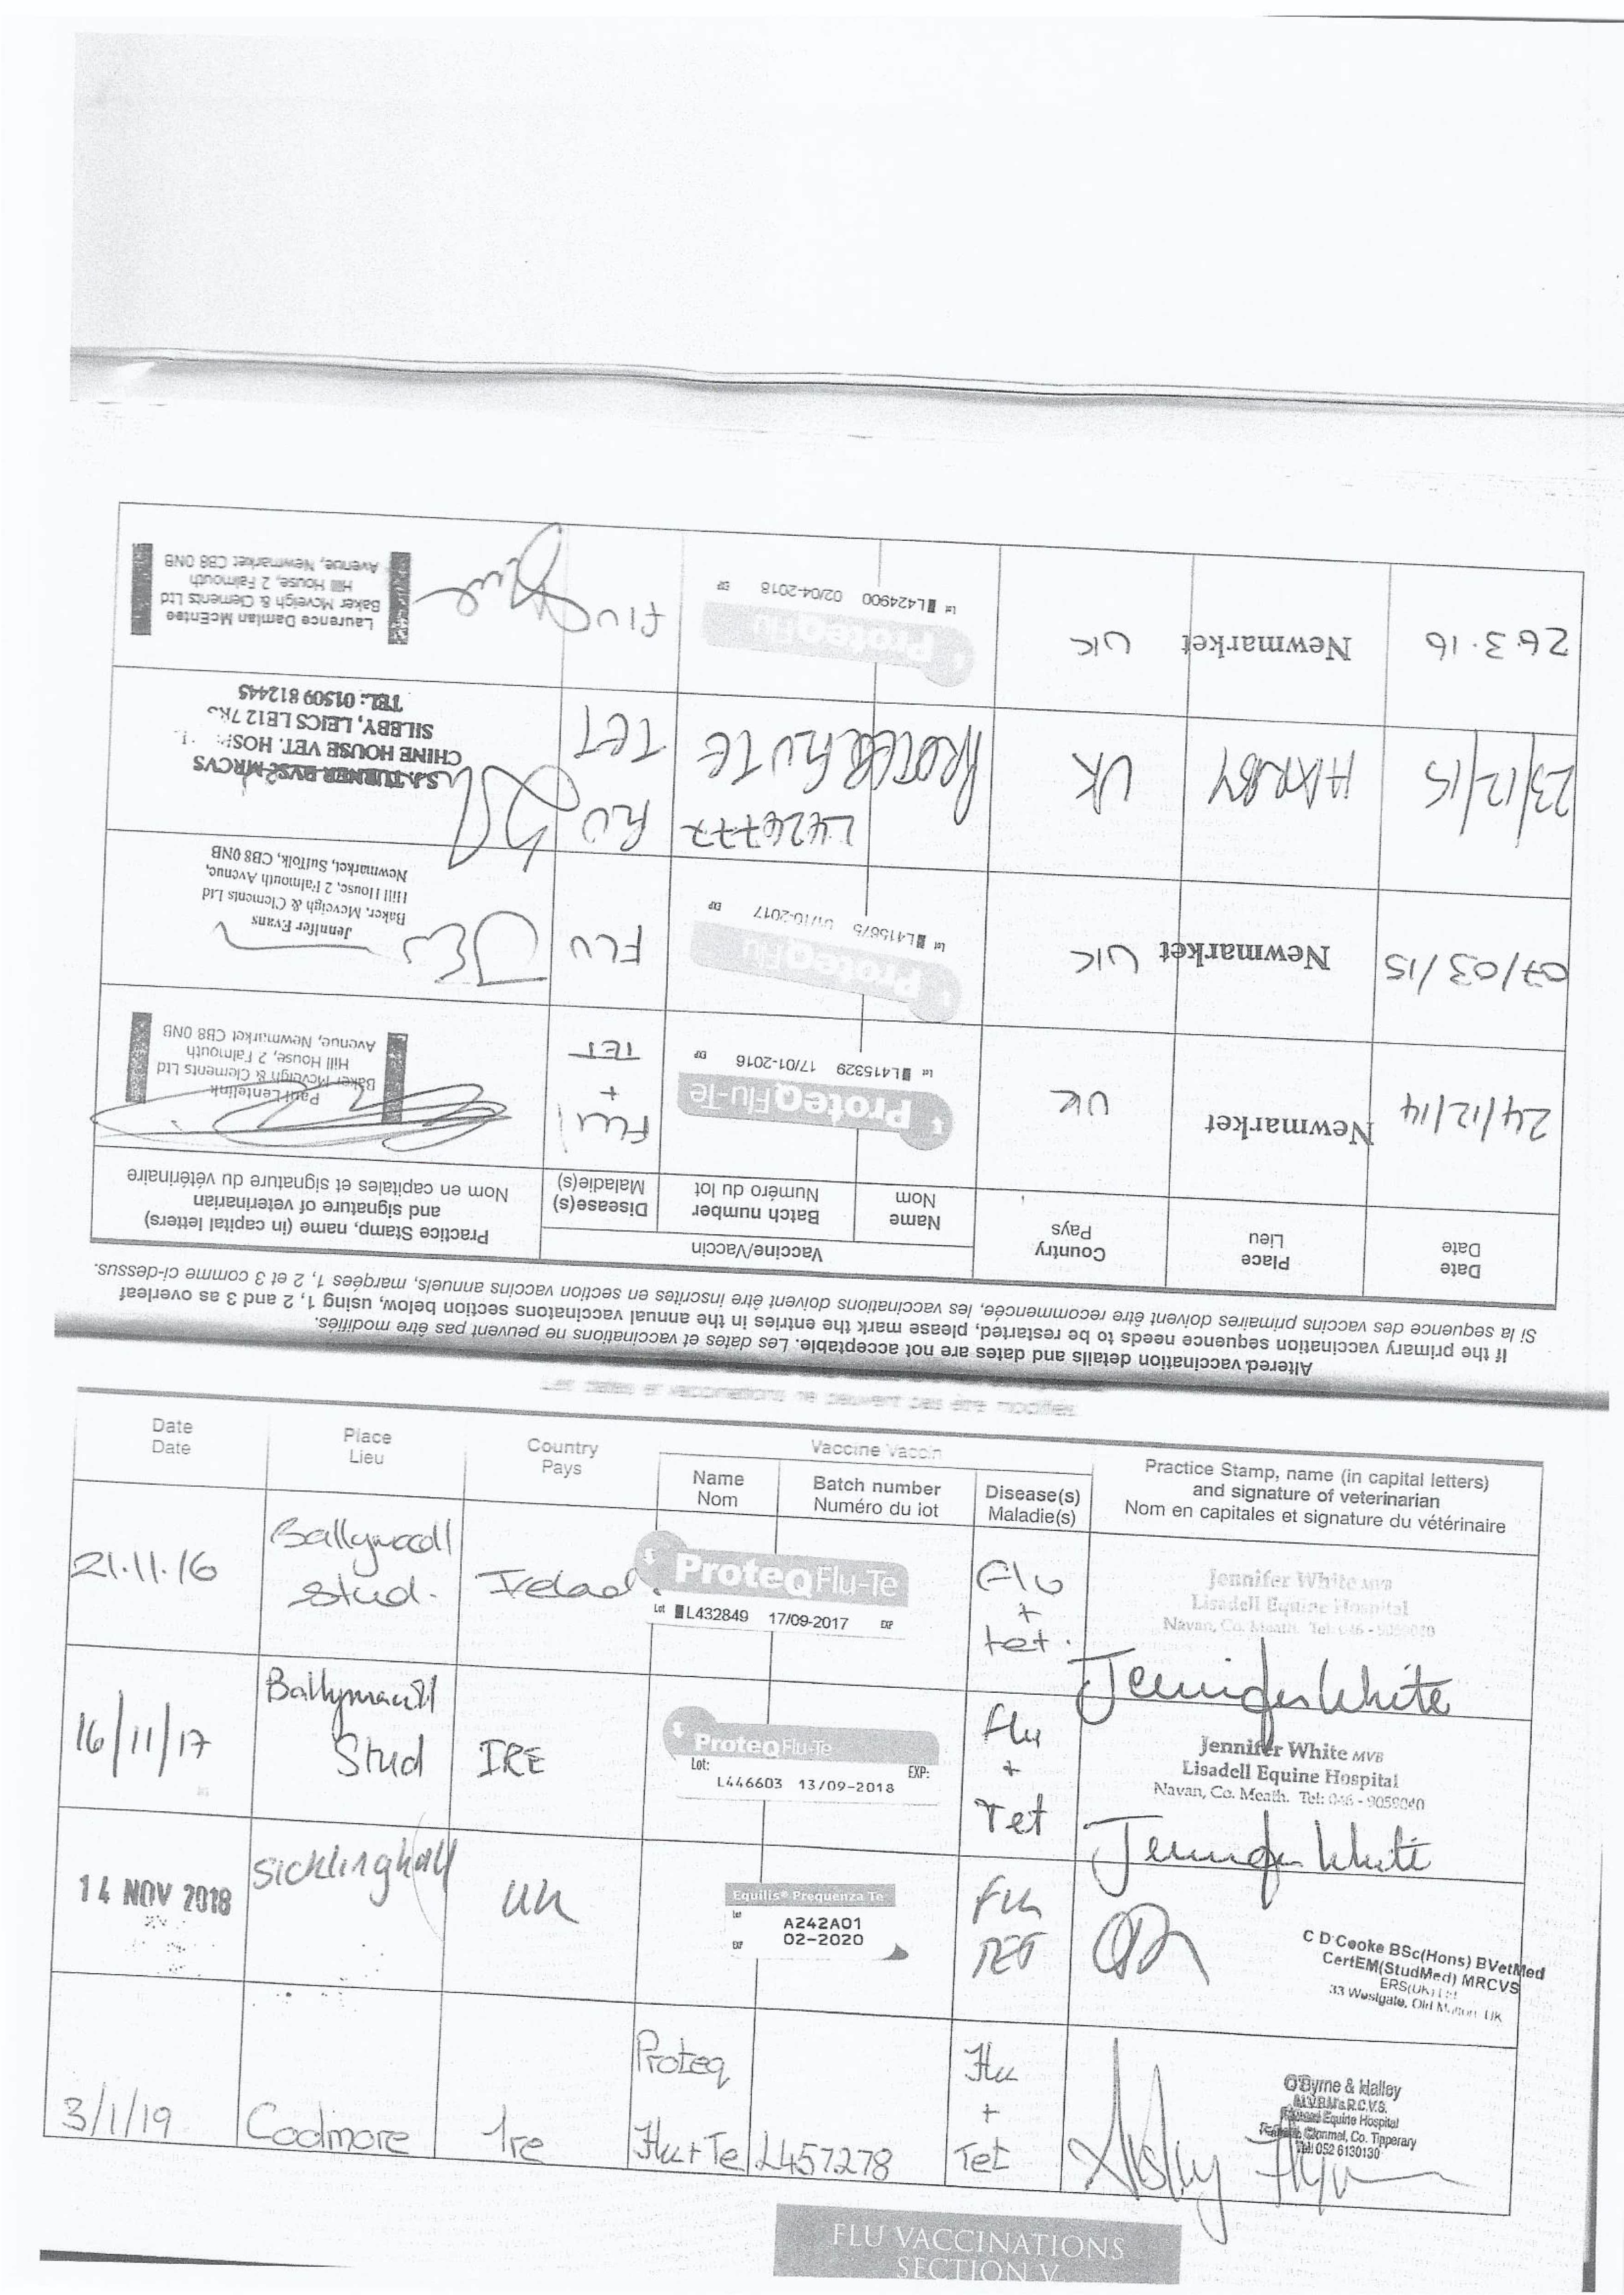 Altered vaccination details and dates are not acceptable. Les dates et vaccinations ne peuvent pas être modifiés.
If the primary vaccination sequence needs to be restarted, please mark the entries in the annual vaccinatons section below, using 1, 2 and 3 as overleaf
Si la sequence des vaccins primaires doivent être recommencée, les vaccinations doivent être inscrites en section vaccins annuels, marqées 1, 2 et 3 comme ci-dessus.
Date
Date
Place
Lieu
Country
Pays
Vaccine/Vaccin
Name
Nom
Batch number
Numéro du lot
Disease(s)
Maladie(s)
Practice Stamp, name (in capital letters)
and signature of veterinarian
Nom en capitales et signature du vétérinaire
24/12/14
Newmarket
UK
ProteqFlu-Te
Lot L415329 17/01-2016 EXP
FLU
+
TET
Paul Lentelink
Baker Mcveigh & Clements Ltd
Hill House, 2 Falmouth
Avenue, Newmarket CB8 0NB
07/03/15
Newmarket
UK
ProteqFlu
Lot L415675 01/10-2017 EXP
FLU
Jennifer Evans
Baker, Mcveigh & Clements Ltd
Hill House, 2 Falmouth Avenue,
Newmarket, Suffolk, CB8 0NB
23/12/15
HARBY
UK
L426777
PROTEQ FLU TE
FLU
TET
S.J. TURNER BVSc MRCVS
CHINE HOUSE VET. HOSP.
SILEBY, LEICS LE12 7RS
TEL: 01509 812445
26.3.16
Newmarket
UK
ProteqFlu
Lot L424900 02/04-2018 EXP
FLU
Laurence Damian McEntee
Baker Mcveigh & Clements Ltd
Hill House, 2 Falmouth
Avenue, Newmarket CB8 0NB
Les dates et vaccinations ne peuvent pas être modifiés.
Date
Date
Place
Lieu
Country
Pays
Vaccine Vaccin
Name
Nom
Batch number
Numéro du lot
Disease(s)
Maladie(s)
Practice Stamp, name (in capital letters)
and signature of veterinarian
Nom en capitales et signature du vétérinaire
21.11.16
Stud.
Ireland.
ProteqFlu-Te
Lot L432849 17/09-2017 EXP
Flu
+
tet.
Jennifer White MVB
Lisadell Equine Hospital
Navan, Co. Meath. Tel: 046 - 9059040
Jennifer White
16/11/17
Stud
IRE
ProteqFlu-Te
Lot: EXP:
L446603 13/09-2018
Flu
+
Tet
Jennifer White MVB
Lisadell Equine Hospital
Navan, Co. Meath. Tel: 046 - 9059040
Jennifer White
14 NOV 2018
Sicklinghall
UK
Equilis® Prequenza Te
Lot A242A01
EXP 02-2020
Flu
TET
C D Cooke BSc(Hons) BVetMed
CertEM(StudMed) MRCVS
ERS(UK) Ltd
33 Westgate, Old Malton, UK
3/1/19
Coolmore
Ire
Proteq
Flu + Te
L457278
Flu
+
Tet
O'Byrne & Halley
M.V.B.M's.R.C.V.S.
Equine Hospital
Clonmel, Co. Tipperary
Tel: 052 6130130
FLU VACCINATIONS
SECTION V